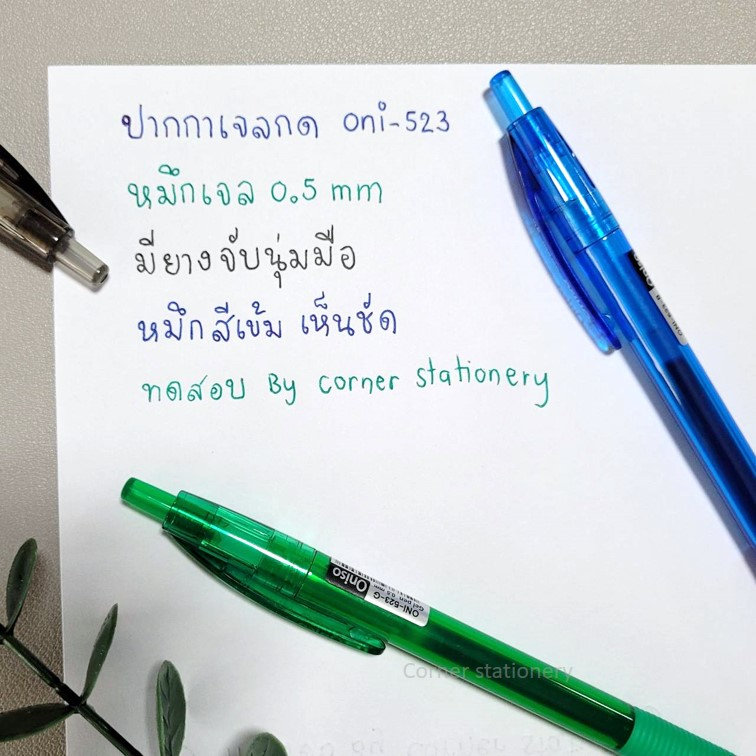 ปากกาเจลกด oni-523
หมึกเจล 0.5 mm
มียางจับนุ่มมือ
หมึกสีเข้ม เห็นชัด
ทดสอบ By corner stationery
Oniso
ONI-523-G
Gel Pen 0.5 mm
Oniso
Corner stationery